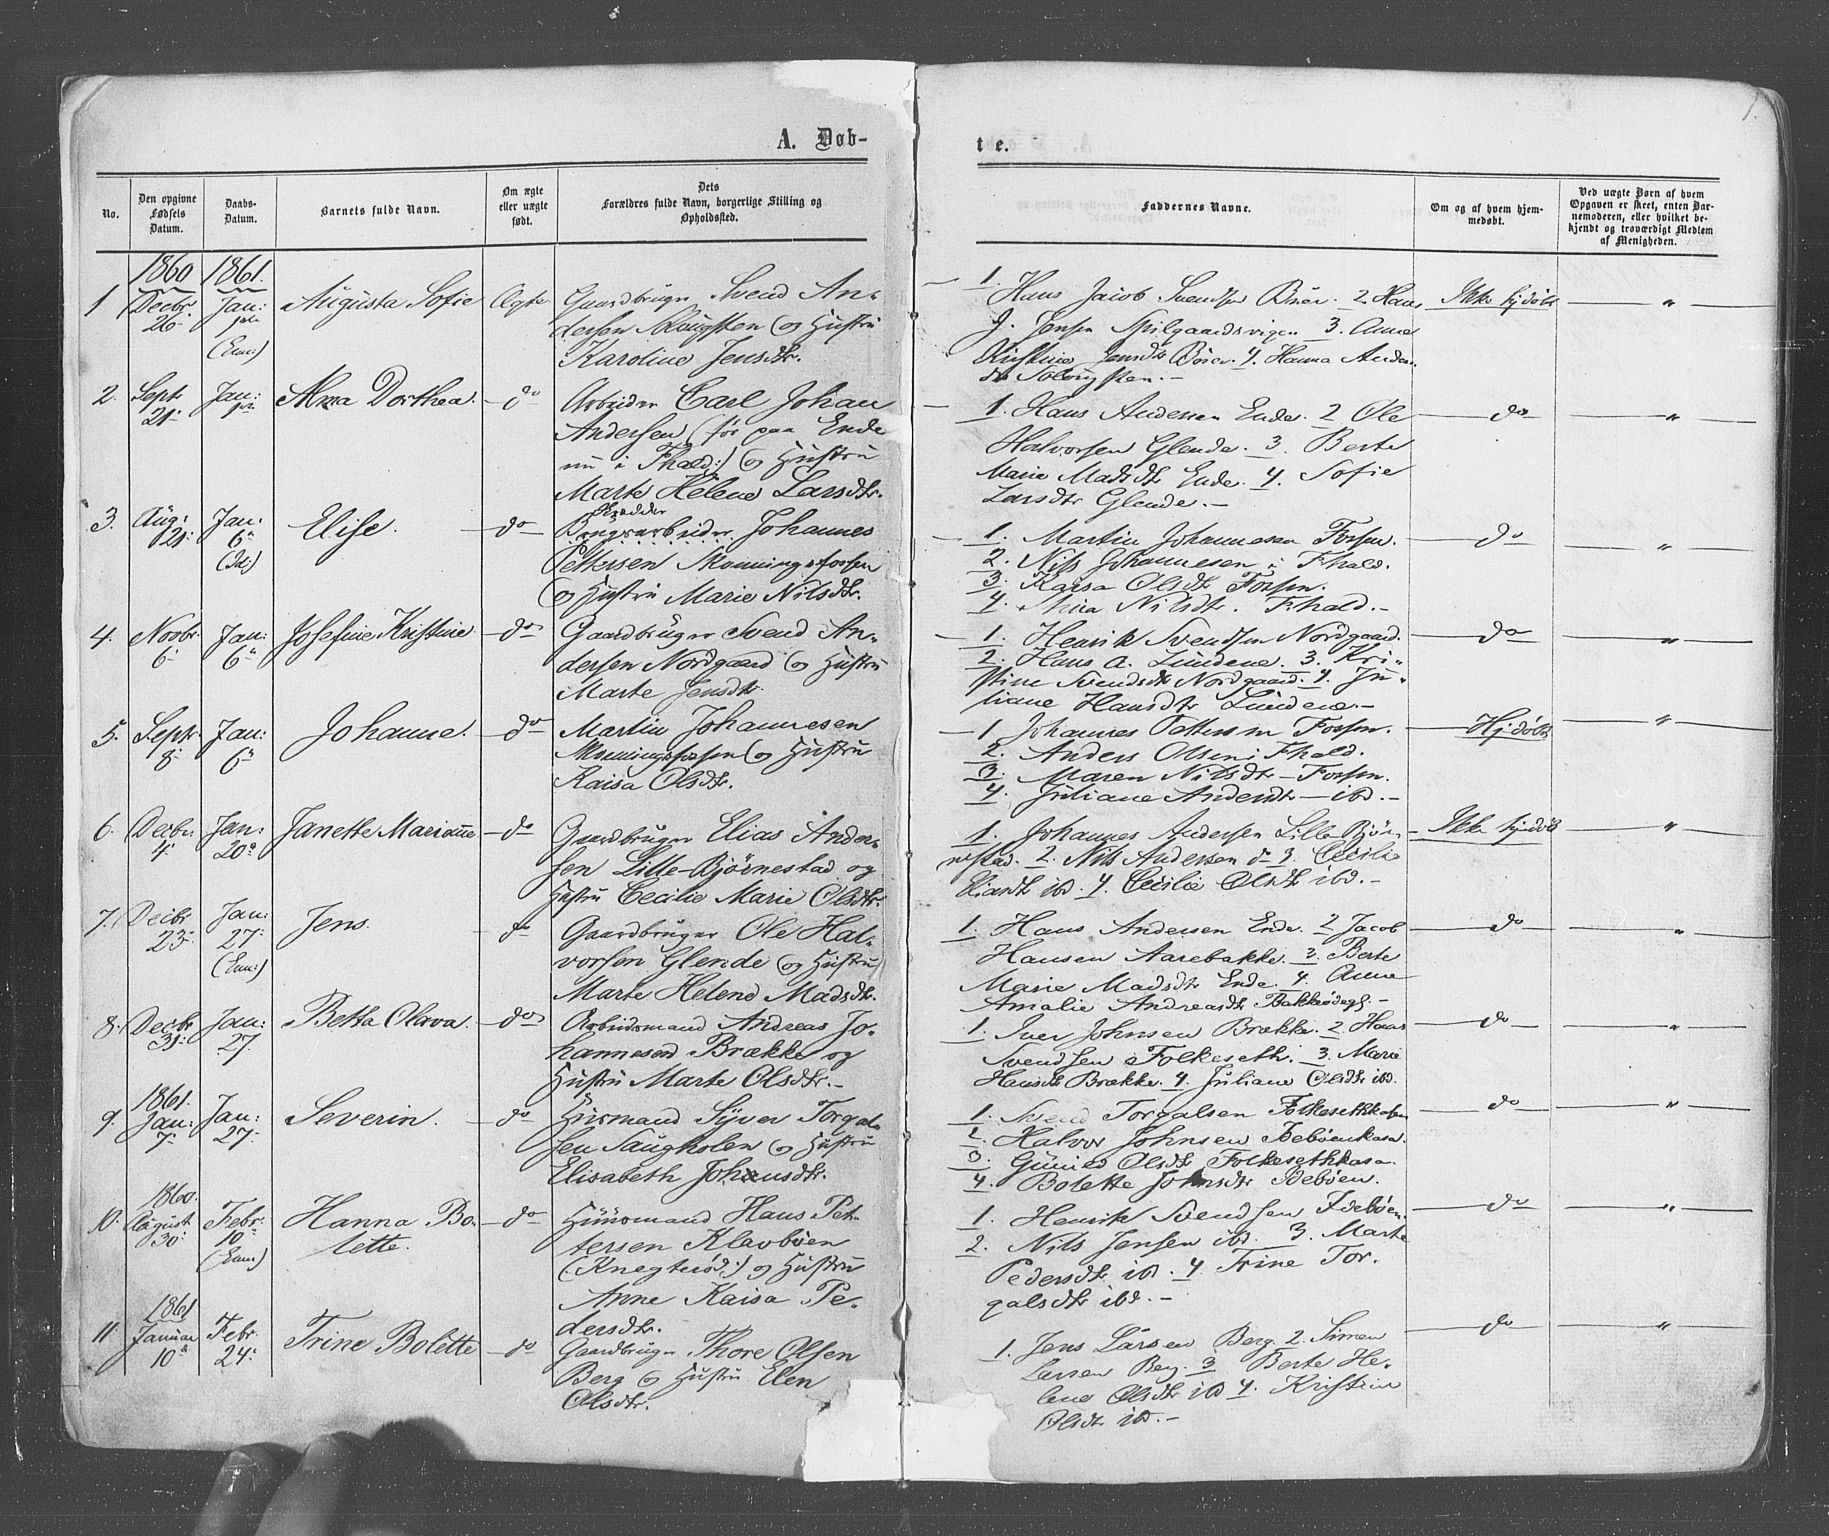 1.
A. Døb-
t e.
No.
Den opgivne
Fødsels
Datum.
Daabs-
Datum.
Barnets fulde Navn.
Om ægte
eller uægte
født.
Dets
Forældres fulde Navn, borgerlige Stilling og
Opholdssted.
Faddernes Navne.
Om og af hvem hjem-
medøbt.
Ved uægte Børn af hvem
Opgaven er skeet, enten Bar-
nemoderen, eller hvilket be-
kjendt og troværdigt Medlem
af Menigheden.
1860 1861.
1 Decbr. 26. Jan: (Enn:) Augusta Sofie Ægte Gaardbruger Svend An-
dersen (og Hustru
Karoline Jensdtr.
1. Hans Jacob Svendsen 2. Hans Ikke hjdøbt "
J. Jensen Spilgaardsvigen 3. Anne
Kirstine Jensdtr 4. Hanna Anders
dtr
2. Sept. 21. Jan: Alma Dorthea. do Arbeider Carl Johan
Andersen (før paa Ende
nu i Fhald:) og Hustru
Marte Helene Larsdtr.
1. Hans Andersen Ende. 2 Ole do "
Halvorsen Glende. 3. Berte
Marie Madsdtr Ende. 4. Sofie
Larsdtr Glende.-
3. Aug: 12. Jan: 6 Elise. do Skrædder
Brugsarbeider Johannes
Pettersen Monningsfossen
(og Hustru Marie Nilsdtr.
1. Martin Johannesen Fossen. do "
2. Nils Johannesen i Fhald.
3. Kaisa Olsdtr Fossen.
4. Nilsdtr. Fhald.-
4. Novbr. 6. Jan: 6 Josefine Kristine do Gaardbruger Svend An-
dersen Nordgaard (og Hustru
Marte Jensdtr.
1. Henrik Svendsen Nordgaard. do "
2. Hans A. Lundene. 3. Kri-
stine Svendsdtr Nordgaard. 4. Ju-
liane Hansdtr Lundene.-
5. Septr. 8. Jan: 6 Johanne. do Martin Johannesen
Monningsfossen (og Hustru
Kaisa Olsdtr.
1 Johannes Pettersen Fossen. Hjdøbt "
2. Anders Olsen i Fhald.
3. Maren Nilsdtr - Fossen.
4. Juliane Andersdtr - ibd.-
6. Decbr. 4. Jan: 20 Janette Marianne do Gaardbruger Elias Ander-
sen Lille-Bjørnestad og
Hustru Cecilie Marie Olsdtr.
1. Johannes Andersen Lille Bjør- Ikke hjdøbt "
nestad. 2. Nils Andersen do 3. Cecilie
Eliasdtr ibd. 4. Cecilie Olsdtr ibd.-
7. Decbr. 23. Jan: 27. (Enn:) Jens. do Gaardbruger Ole Hal-
vorsen Glende (og Hustru
Marte Helene Madsdtr.
1. Hans Andersen Ende. 2 Jacob do "
Hansen Aarebakke. 3. Berte
Marie Madsdtr Ende. 4. Anne
Amalie Andreasdtr
8. Decbr. 31. Jan: 27. Betta Olava. do Arbeidsmand Andreas Jo-
hannesen Brække og
Hustru Marte Olsdtr.-
1. Iver Johnsen Brække. 2. Hans do "
Svendsen Folkeseth. 3. Marie
Hansdtr Brække. 4. Juliane Olsdtr ibd.
9. 1861. Jan: 7. Jan: 27. Severin. do Husmand Syver Torgal-
sen Saugholen og Hustru
Elisabeth Johnsdtr.
1. Svend Torgalsen do "
2. Halvor Johnsen
3. Olsdtr Folkesethkasa.
4. Bolette Johnsdtr Idebøen.
10. 1860. August 30. Febr. 10 (Enn:) Hanna Bo-
lette. do Huusmand Hans Pet-
tersen Klavbøen
(Knegterød:) og Hustru
Anne Kaisa Pe-
dersdtr.
1. Henrik Svendsen Idebøen- do "
2. Nils Jensen ibd. 3. Marte
Pedersdtr ibd. 4 Trine Tor-
galsdtr ibd.-
11. 1861 Januar 10 Febr. 24. Trine Bolette do Gaardbruger Thore Olsen
Berg og Hustru Elen
Olsdtr.
1. Jens Larsen Berg. 2. Simen do "
Larsen Berg. 3 Berte He-
lene Olsdtr ibd 4. Kristine
Olsdtr ibd.-